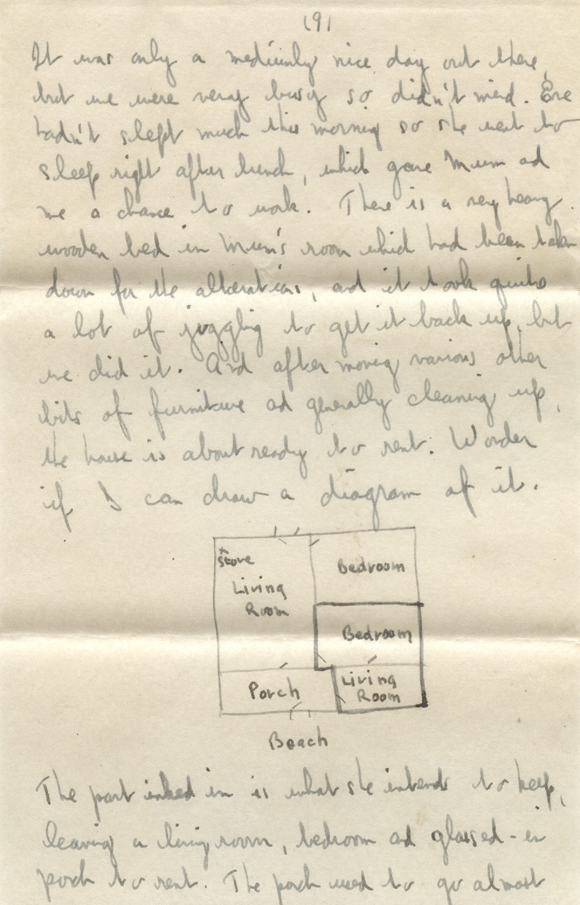 (9)
It was only a mediumly nice day out there,
but we were very busy so didn't mind. Eve
hadn't slept much this morning so she went to
sleep right after lunch, which gave Mum ad
me a chance to work. There is a very heavy
wooden bed in Mum's room which had been taken
down for the alterations, and it took quite
a lot of juggling to get it back up, but
we did it. And after moving various other
bits of furniture ad generally cleaning up,
the house is about ready to rent. Wonder
if I can draw a diagram of it.
stove
Living
Room
Bedroom
Bedroom
Porch
Living
Room
Beach
The part inked in is what she intends to keep,
leaving a living room, bedroom ad glassed-in
porch to rent. The porch used to go almost